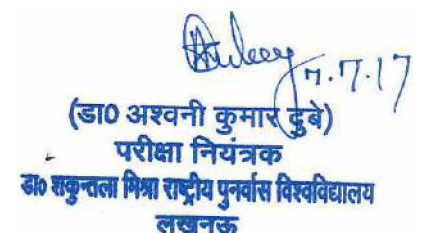 7.7.17
(डा0 अश्वनी कुमार दुबे)
परीक्षा नियंत्रक
डा० शकुन्तला मिश्रा राष्ट्रीय पुनर्वास विश्वविद्यालय
लखनऊ